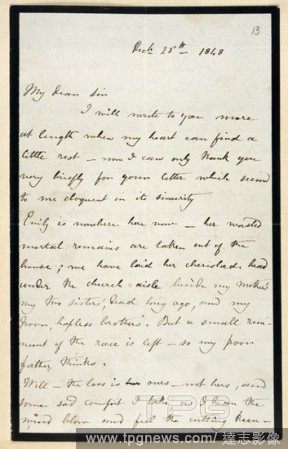 13
Dec 25th 1848
My dear Sir
I will write to you more
at length when my heart can find a
little rest - now I can only thank you
very briefly for your letter which seemed
to me eloquent in its sincerity
Emily is nowhere here now - her wasted
mortal remains are taken out of the
house; we have laid her cherished head
under the church-aisle beside my mother's
my two sisters', dead long ago, and my
poor, hapless brother's. But a small rem-
nant of the race is left - so my poor
father thinks.
Well - the loss is ours - not hers, and
some sad comfort I take, as I hear the
wind blow and feel the cutting keen-
www.tpgnews.com / 達志影像